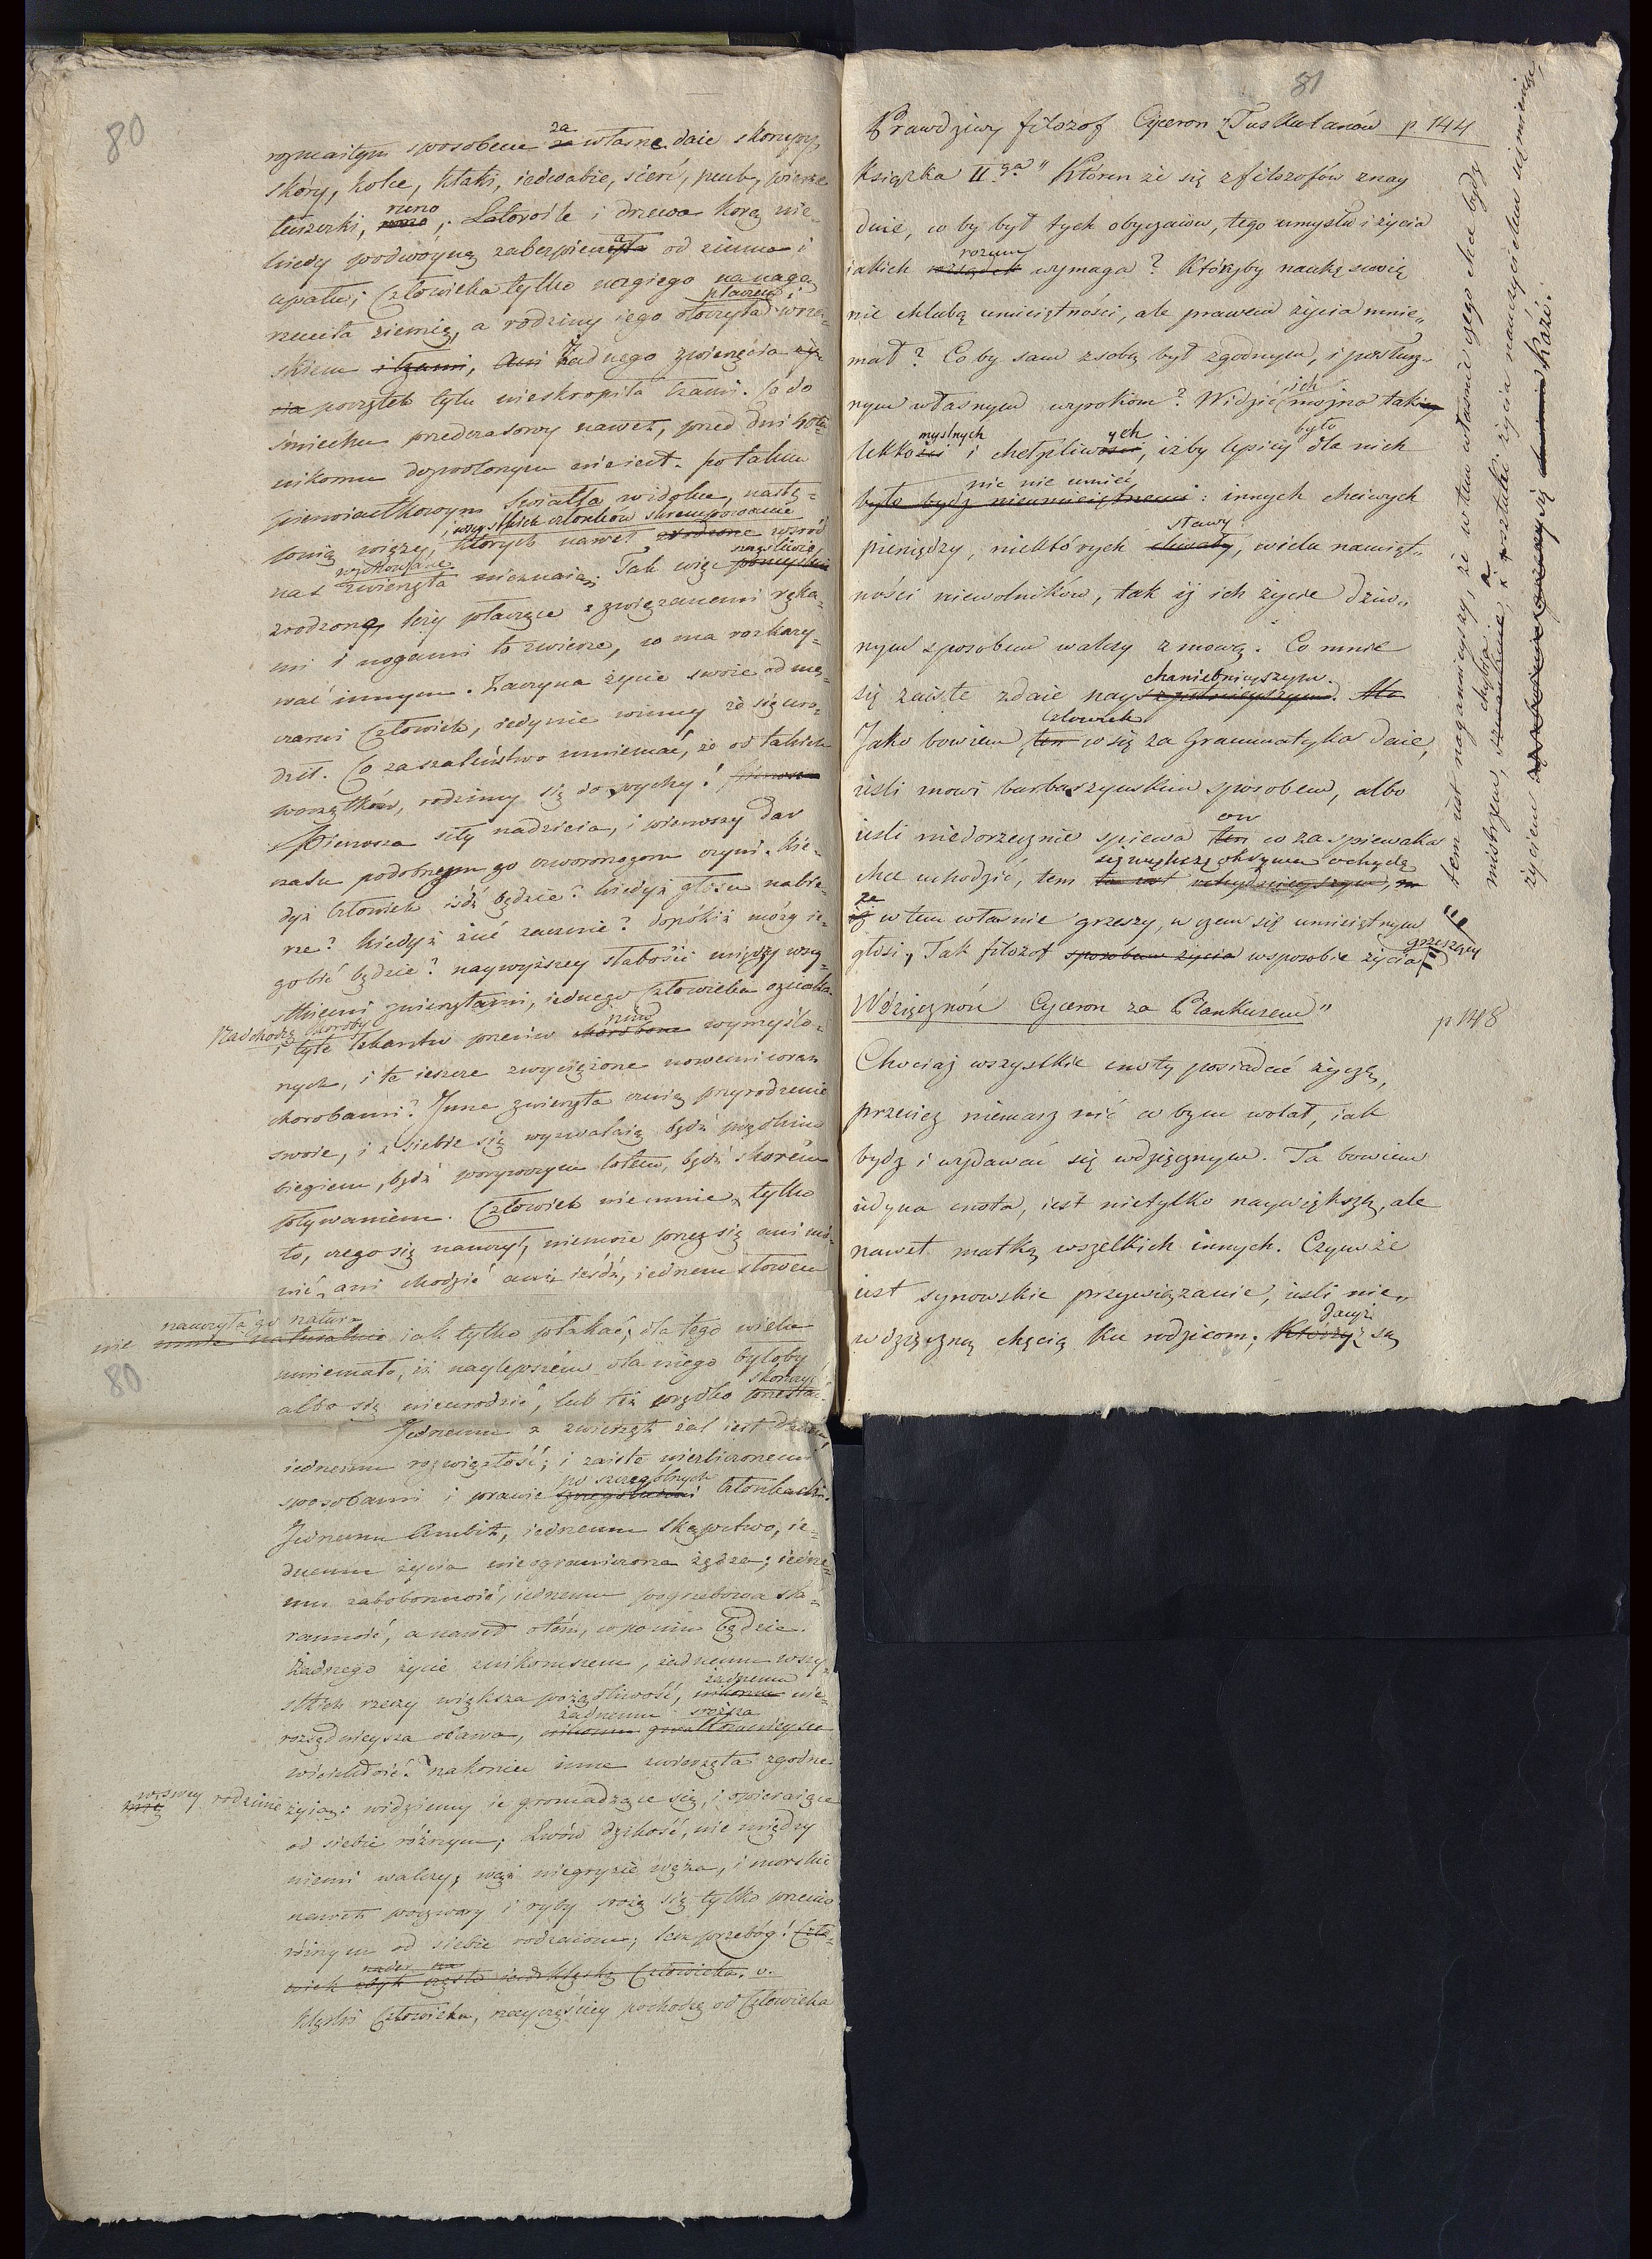 80
rozmaitym sposobem za własne daie skorupy,
skóry, kolce, kłaki, iedwabie, sierć, puch, pierze
łuszczki, runo; Latorośle i drzewa korą nie-
kiedy podwóyną zabezpieczyła od zimna i
upału; Człowieka tylko nagiego na nagą
rzuciła ziemię, a rodziny iego otoczyła płaczem i wrza-
skiem i łzami, Ani Żadnego zwierzęcia ży-
cia początek tylu nieskropiła łzami. Co do
śmiechu przedczasowy nawet, przed dni 40tą
nikomu dozwolonym nie iest. po takim
pierwiastkowym światła widoku, nastę-
i wszystkich członków skrempowanie
których nawet zrodzone wśród
nas wychowane zwierzęta nieznaią; Tak więc szczęśliwie
zrodzone, leży płaczące z związanemi ręka-
mi i nogami to zwierze, co ma rozkazy-
wać innym. Zaczyna życie swoie od mę-
czarni Człowiek, iedynie winny że się uro-
dził. Co za szaleństwo mniemać, że od takich
początków, rodzimy się do pychy! Pierwsza
Pierwsza siły nadzieia, i pierwszy dar
czasu podobnym go czworonogom czyni. Kie-
dyż człowiek iść będzie? kiedyż głosu nabie-
rze? kiedyż żuć zacznie? dopókiż mózg ie-
go bić będzie? naywyższey słabości między wszy-
stkiemi zwierzętami, iednego Człowieka oznaka.
Nadchodzą choroby
i tyle lekarstw przeciw nim chorobom wymyślo-
nych, i te ieszcze zwyciężone nowemi coraz
chorobami? Inne zwierzęta czuią przyrodzenie
swoie, i z siebie się wyuczaią bądź prędkim
biegiem, bądź porywczym lotem, bądź skorém
pływaniem. Człowiek nieumie, tylko
to, czego się nauczył, niemoże przez się ani mó-
wić, ani chodzić ani ieśdź, iednem słowem
nauczyła go natura
nie umie naturalnie iak tylko płakać; dla tego wielu
80
mniemało, iż naylepszém dla niego byłoby
albo się nieurodzić, lub też prędko skończyć przestać.
Jednemu z zwierząt żal iest dany,
iednemu rozwiązłość; i zaiste niezliczonemi
sposobami i prawie po szczególnych członkach.
Jednemu Ambit, iednemu skąpstwo, ie-
dnemu życia nieograniczona żądza; iedne-
mu zabobonność, iednemu pogrzebowa sta-
ranność, a nawet o tém, co po nim będzie.
Żadnego życie znikomszem, żadnemu wszy-
stkich rzeczy większa pożądliwość, żadnemu nikomu nie-
rozsądnieysza obawa, żadnemu sroższa nikomu gwałtownieysza
wściekłość. nakoniec inne zwierzęta zgodne
w swey rodzinie żyią: widziemy ie gromadzące się, i opieraiące
od siebie różnym; Lwów dzikość, nie między
niemi walczy, wąż niegryzie węża, i morskie
nawet poczwary i ryby srożą się tylko przeciw
różnym od siebie rodzaiom; lecz przebóg! Czło-
wiek
klęski Człowieka, nayczęściey pochodzą od Człowieka
81
Prawdziwy filozof Cyceron z Tuskulanów p 144
Książka II.ga " Któren że się z filozofów znay
duie, co by był tych obyczaiów, tego umysłu i życia
jakich rozum rozsądek wymaga? Któryby naukę swoię
nie chlubą umieiętności, ale prawem życia mnie„
mał? Co by sam z sobą był zgodnym, i posłusz„
nym własnym wyrokom? Widzieć ich można tak
lekkomyslnych i chełpliwych, iżby lepiey było dla nich
nic nie umieć
było bydz nieumieiętnemi: innych chciwych
pieniędzy, niektórych sławy chwały, wielu namięt„
ności niewolników, tak iż ich życie dziw„
nym sposobem walczy z mową. Co mnie
się zaiste zdaie nayhaniebnieyszym. Ale
Jako bowiem człowiek ten co się za Grammatyka daie,
ieśli mowi barbarzyńskim sposobem, albo
ieśli niedorzecznie spiewa ow ten co za spiewaka
chce uchodzić, tem się większą okrywa ochydą
że iż w tem własnie grzeszy, w czem się umieiętnym
głosi, Tak filozof sposobem życia w sposobie życia grzeszący
tem iest naganieyszy, że w tem własnie czego chce bydz
mistrzem, chybia: a sztuki życia nauczycielem się mieniąc,
życiem się kazi.
Wdzięczność Cyceron za Plankusem" p 148
Chociaż wszystkie cnoty posiadać życzę,
przecież niemasz nic co bym wolał, iak
bydz i wydawać się wdzięcznym. Ta bowiem
iedyna cnota, iest nietylko naywiększą, ale
nawet matką wszelkich innych. Czymże
iest synowskie przywiązanie, ieśli nie„
wdzięczną chęcią ku rodzicom; Którzyż są